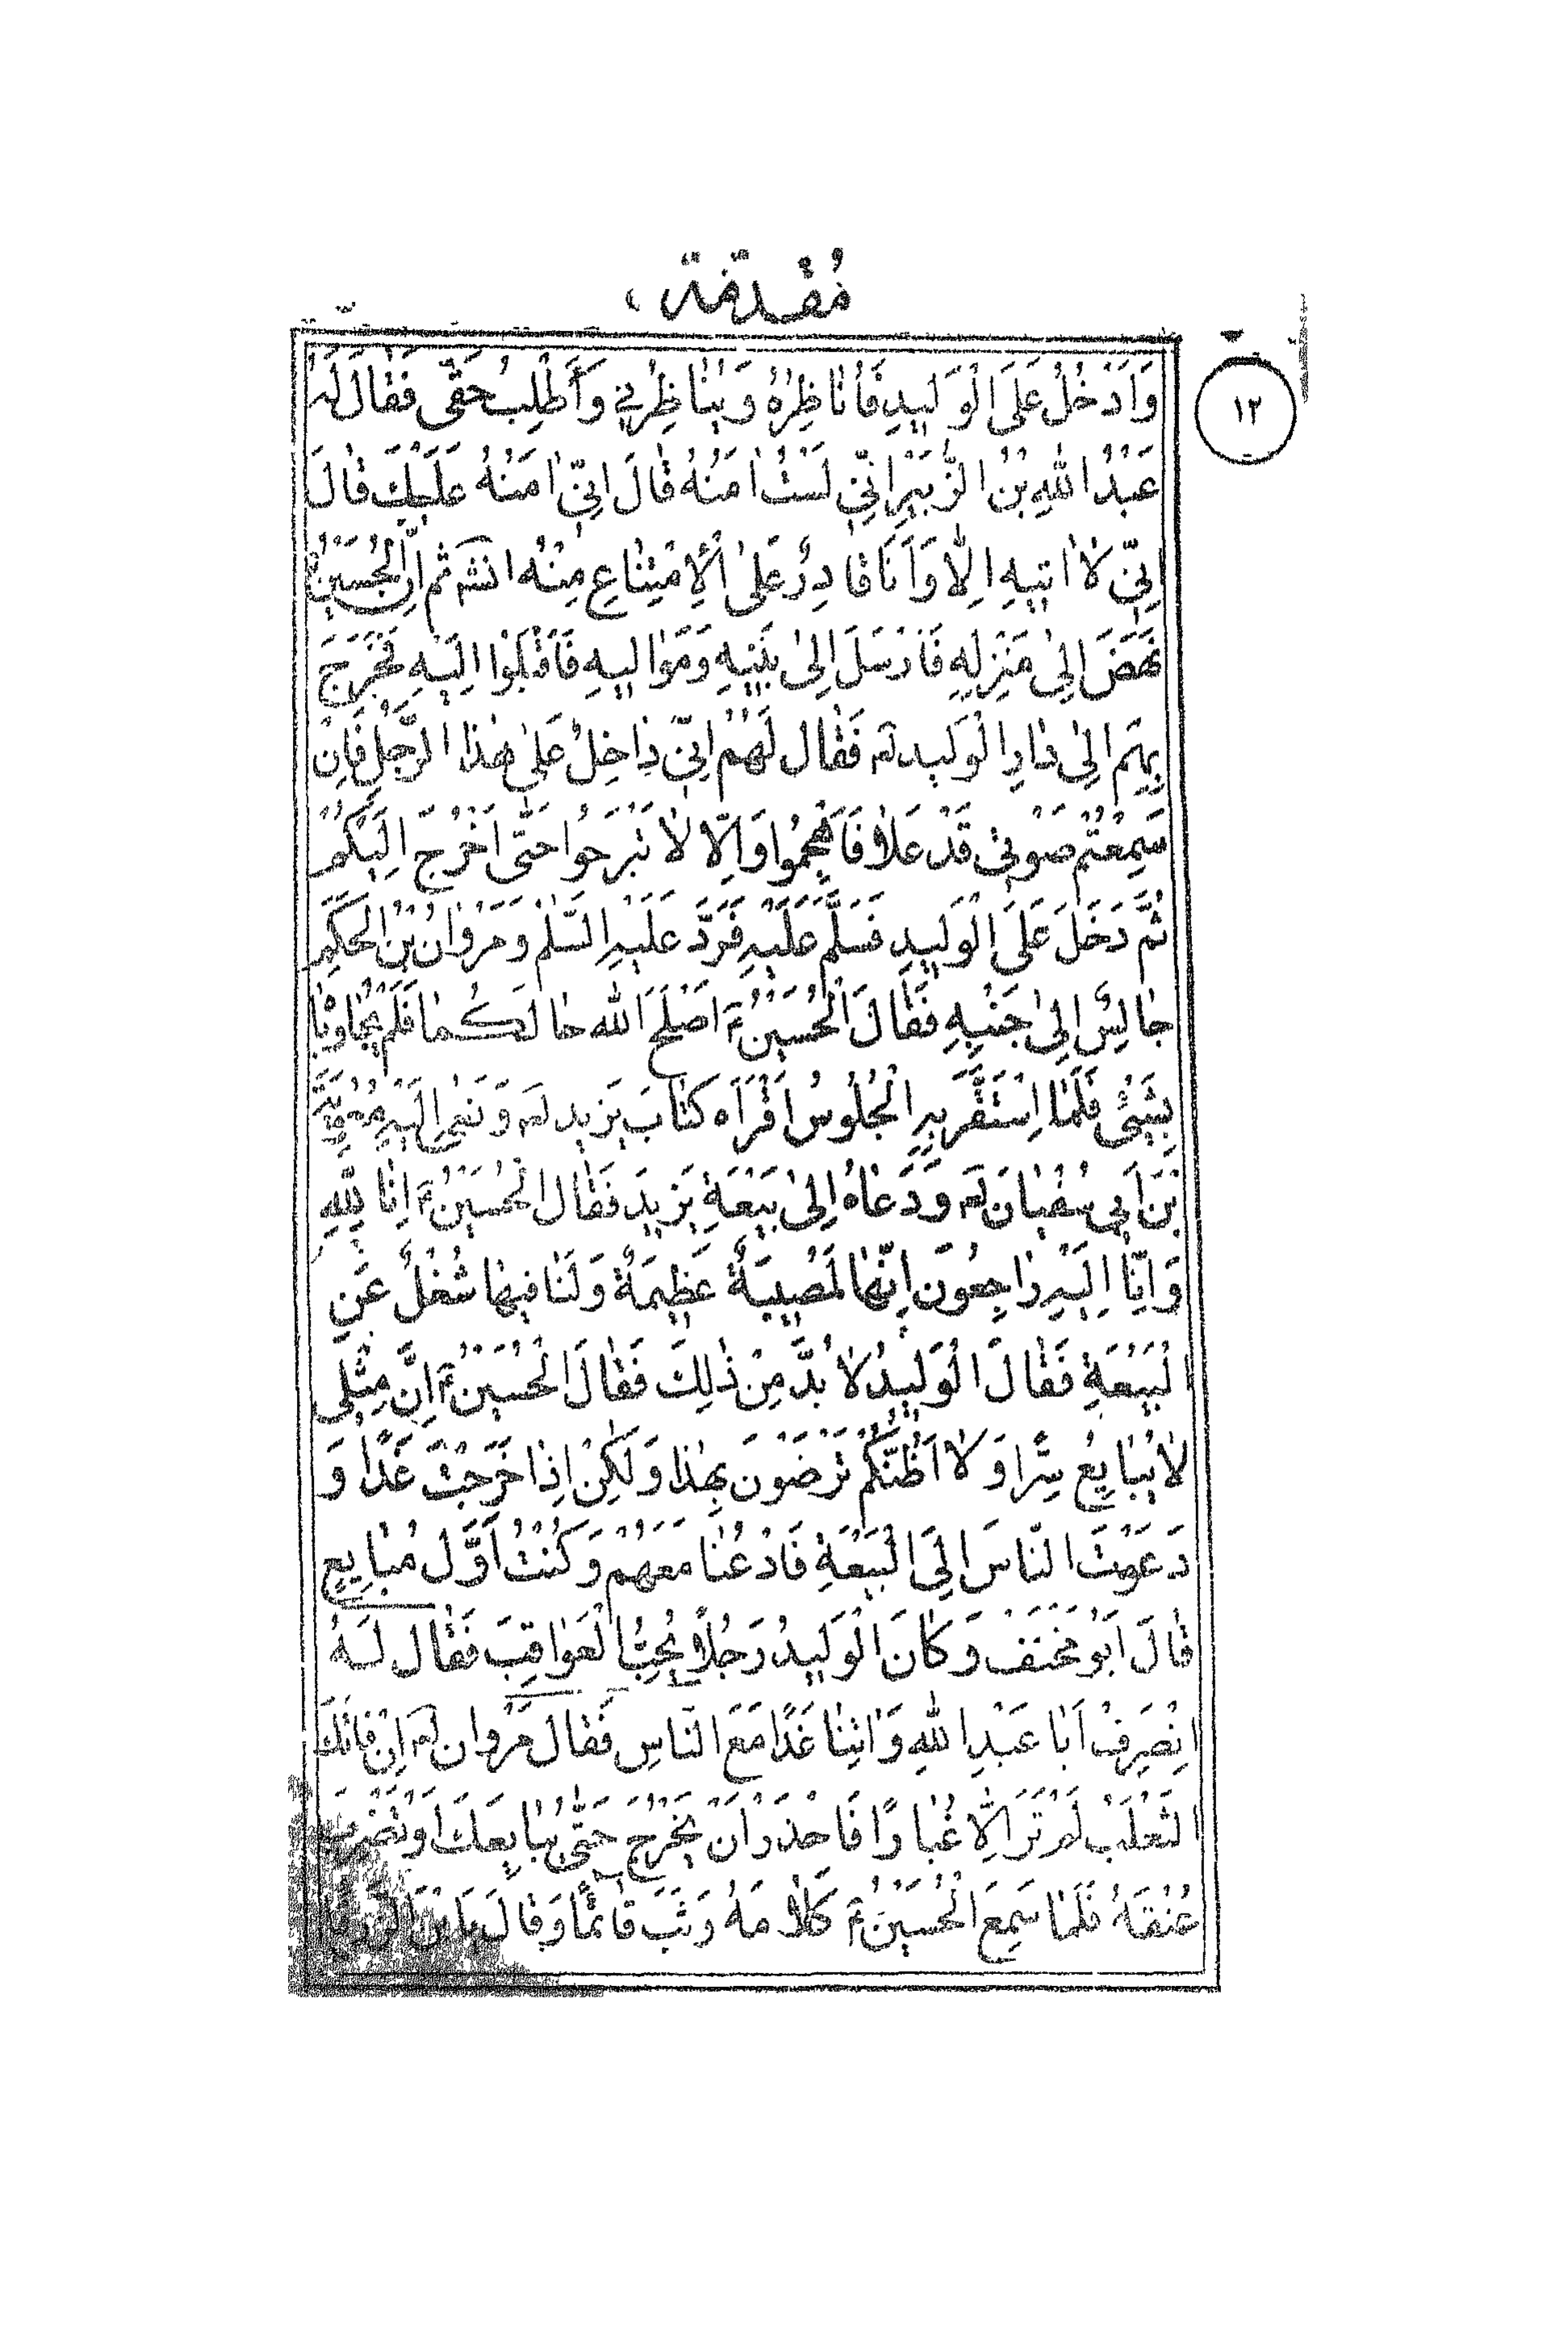 مُقَدَّمَة،
١٢
وَاَدْخُلُ عَلَى الْوَلِيدِ فَاُنَاظِرُهُ وَيُنَاظِرُنِي وَأَطْلِبُ حَقّى فَقَالَ لَهُ
عَبْدُ اللهِ بْنُ الزُّبَيْرِ اِنّي لَسْتُ اٰمَنُهُ قَالَ اِنّي اٰمَنُهُ عَلَيْكَ قَالَ
اِنّي لاٰ اٰتيهِ اِلّا وَاَنَا قَادِرٌ عَلَى الْاِمْتِنَاعِ مِنْهُ انشه ثم اِنَّ الْحُسَيْنَ
نَهَضَ اِلىٰ مَنْزِلِهِ فَاَرْسَلَ اِلىٰ بَنيهِ وَمَوَاليهِ فَاَقْبَلُوْا اِلَيْهِ فَخَرَجَ
بِهِمْ اِلىٰ دَارِ الْوَليد لعه فَقَالَ لَهُمْ اِنّي دٰاخِلٌ عَلىٰ هٰذَا الرَّجُلِ فَاِنْ
سَمِعْتُمْ صَوْتي قَدْ عَلاٰ فَاهْجِمُوا وَاِلّا لاٰ تَبْرَحُوا حَتّٰى اَخْرُجَ اِلَيْكُمْ
ثُمَّ دَخَلَ عَلَى الْوَليدِ فَسَلَّمَ عَلَيْهِ فَرَدَّ عَلَيْهِ السَّلٰمَ وَمَرْوَانُ بْنُ الْحَكَمِ
جٰالِسٌ اِلىٰ جَنْبِهِ فَقَالَ الْحُسَيْنُ ع اَصْلَحَ اللهُ حٰالَكُمٰا فَلَمْ يُجٰاوِبٰا
بِشَيْئٍ فَلَمّٰا اِسْتَقَرَّ بِهِ الْجُلُوسُ اَقْرَأَه كِتٰابَ يَزيد لعه وَنَعىٰ اِلَيْهِ مُعٰوِيَةَ
بْنَ اَبي سُفْيٰانَ لعه وَدَعٰاهُ اِلىٰ بَيْعَةِ يَزيدَ فَقَالَ الْحُسَيْنُ ع اِنّٰا لِلّٰهِ
وَاِنّٰا اِلَيْهِ رٰاجِعُونَ اِنَّهٰا لَمُصيبَةٌ عَظِيمَةٌ وَلَنٰا فيهٰا شُغْلٌ عَنِ
الْبَيْعَةِ فَقَالَ الْوَليدُ لاٰ بُدَّ مِنْ ذٰلِكَ فَقَالَ الْحُسَيْنُ ع اِنَّ مِثْلي
لاٰ يُبٰايِعُ سِرًّا وَلاٰ اَظُنُّكُمْ تَرْضَوْنَ بِهٰذٰا وَلٰكِنْ اِذٰا خَرَجْتَ غَدًا وَ
دَعَوْتَ النّٰاسَ اِلَى الْبَيْعَةِ فَادْعُنٰا مَعَهُمْ وَكُنْتُ اَوَّلَ مُبٰايِعٍ
قَالَ اَبُو مَخْنَف وَكٰانَ الْوَليدُ رَجُلاً يُحِبُّ الْعَوٰاقِبَ فَقَالَ لَهُ
اِنْصَرِفْ اَبٰا عَبْدِ اللهِ وَاٰتِنٰا غَدًا مَعَ النّٰاسِ فَقَالَ مَرْوان لعه اِنْ فٰاتَكَ
الثَّعْلَب لَمْ تَرَ اِلّا غُبٰارًا فَاحْذَرْ اَنْ يَخْرُجَ حَتّٰى يُبٰايِعَكَ اَوْ تَضْرِبَ
عُنُقَهُ فَلَمّٰا سَمِعَ الْحُسَيْنُ ع كَلاٰمَهُ وَثَبَ قٰائِمًا وَقَالَ يَا بْنَ الزَّرْقٰا